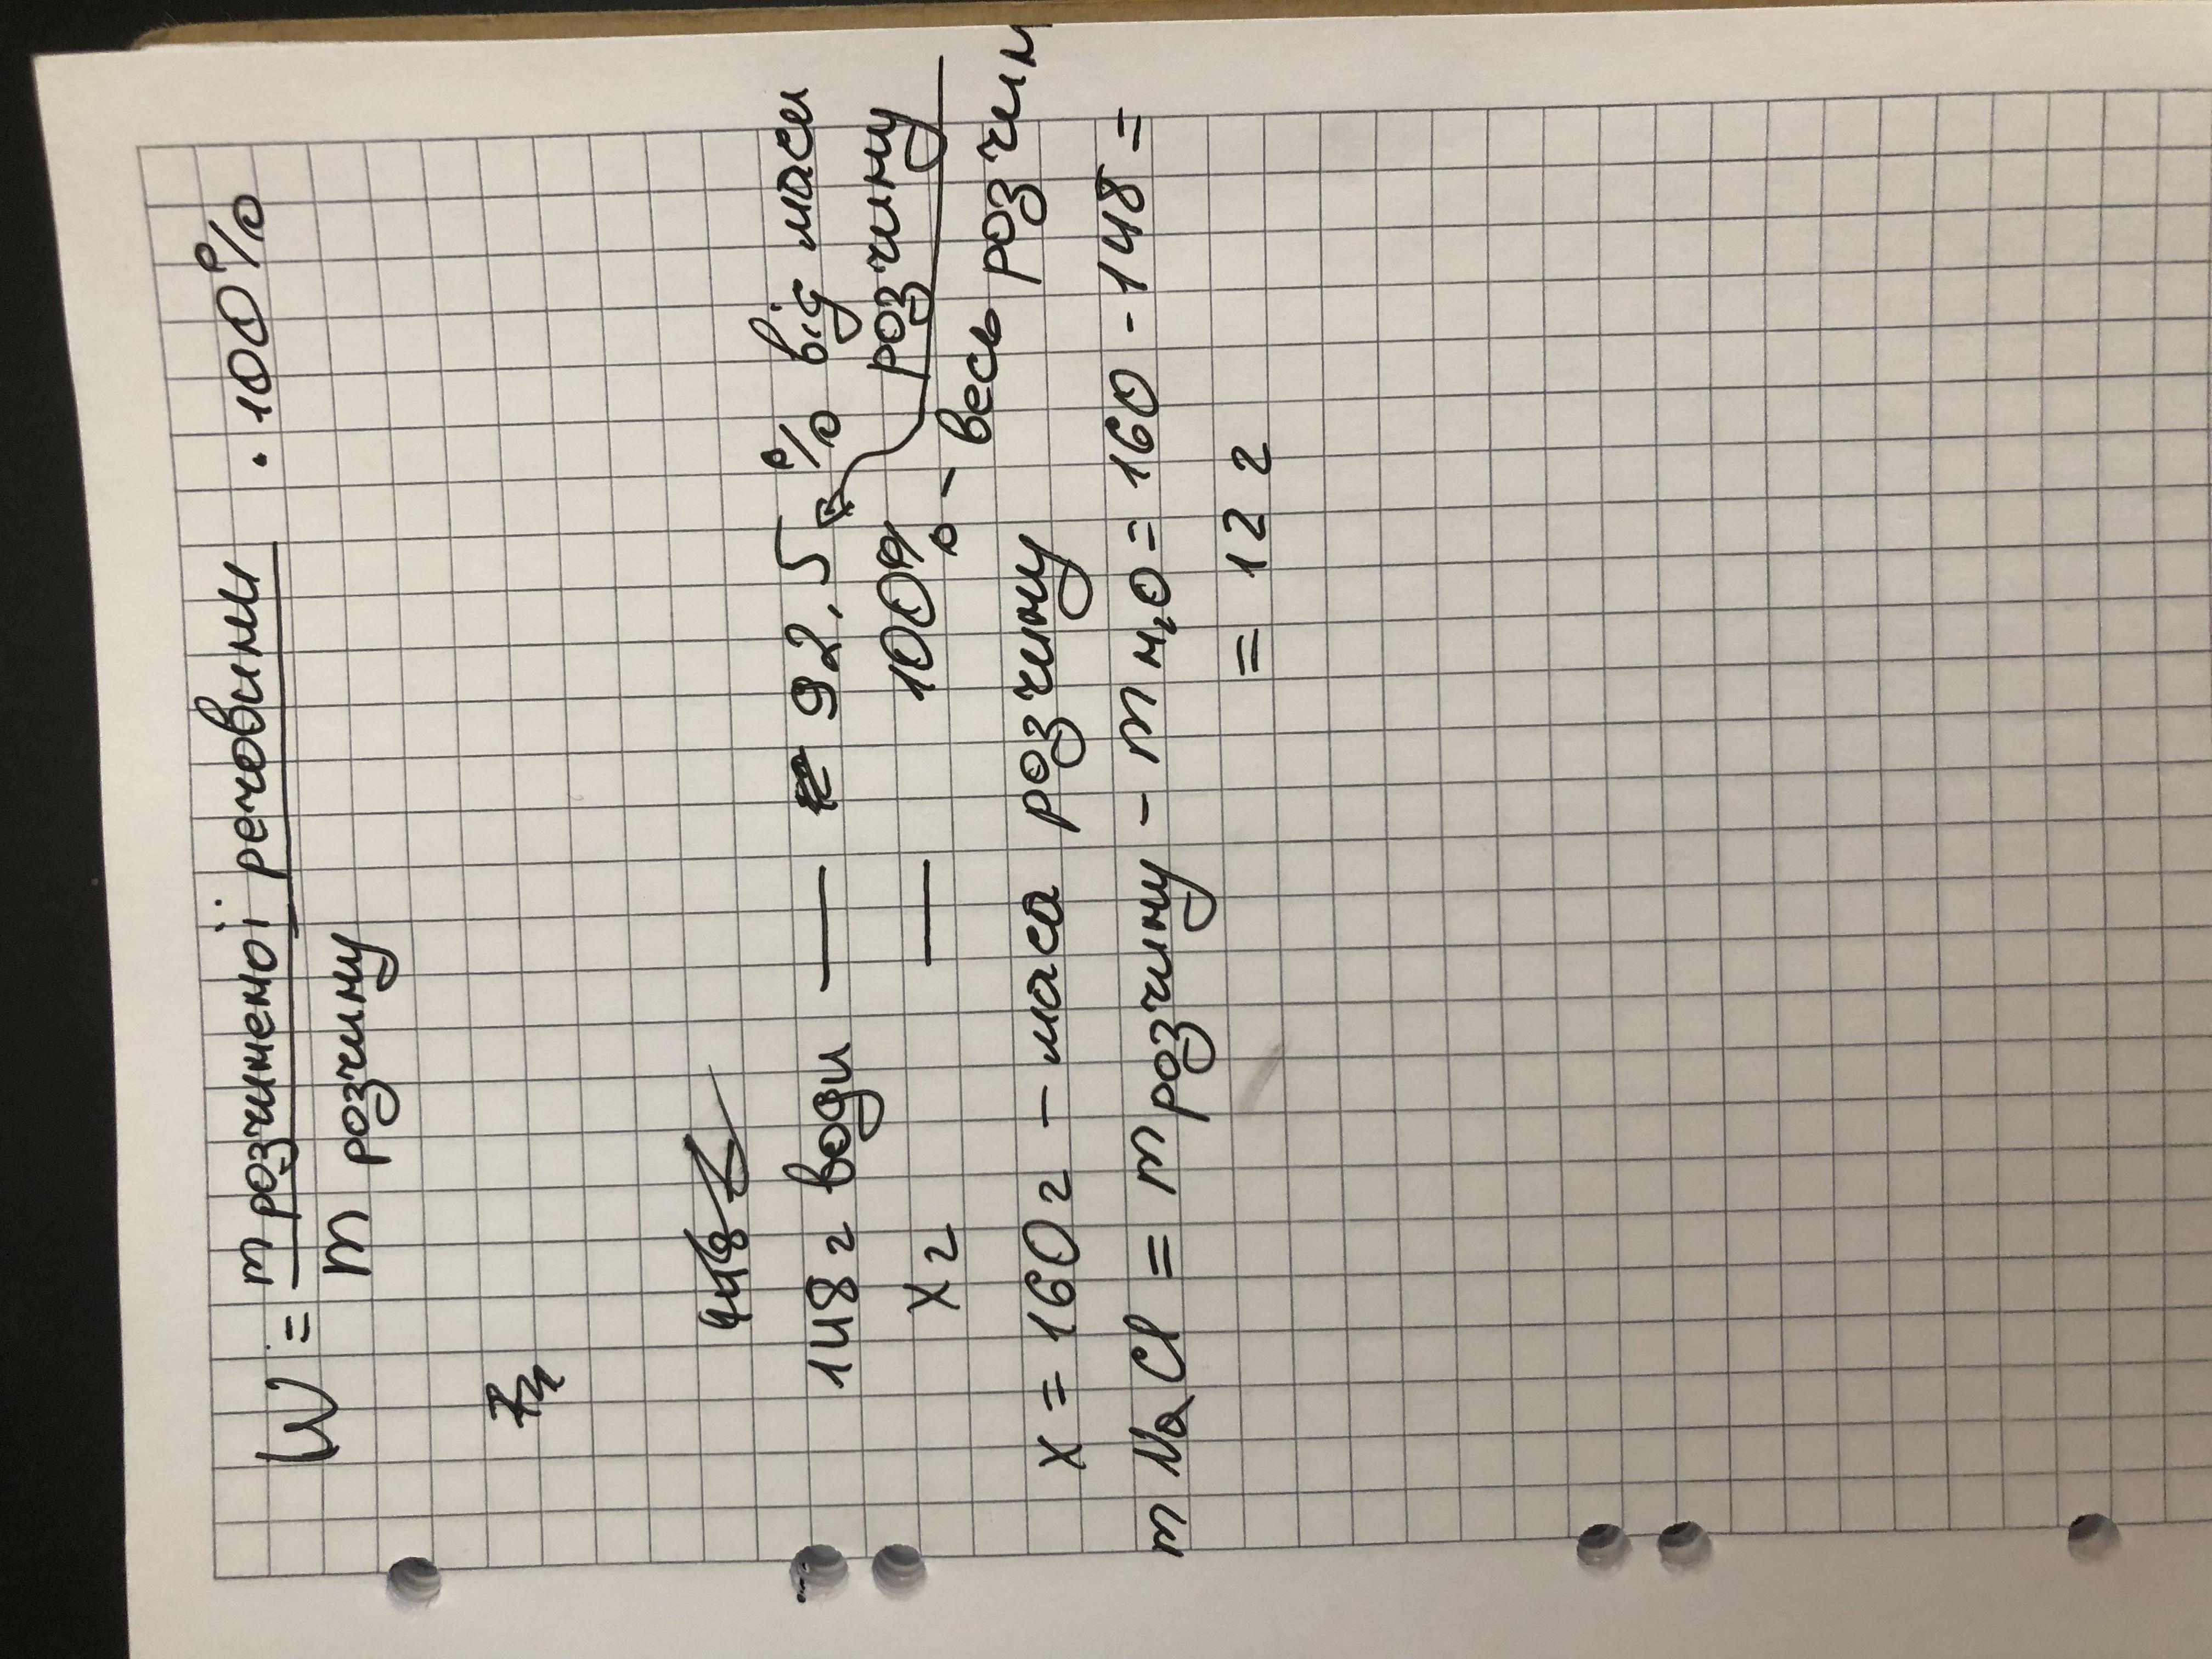 W = m розчиненої речовини · 100%
m розчину
148 г води — 92,5 % від маси
розчину
x г — 100% - весь розчин
x = 160 г - маса розчину
m NaCl = m розчину - m H₂O = 160 - 148 =
= 12 г